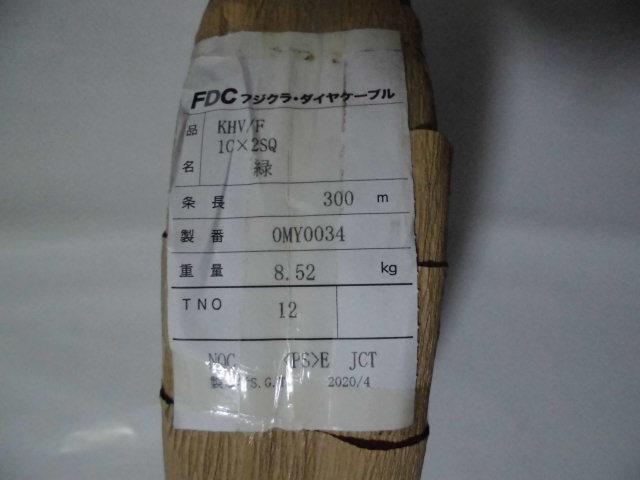 FDC フジクラ・ダイヤケーブル
品名 KHV/F
1C×2SQ
緑
条長 300 m
製番 0MY0034
重量 8.52 kg
TNO 12
NOC <PS>E JCT
2020/4